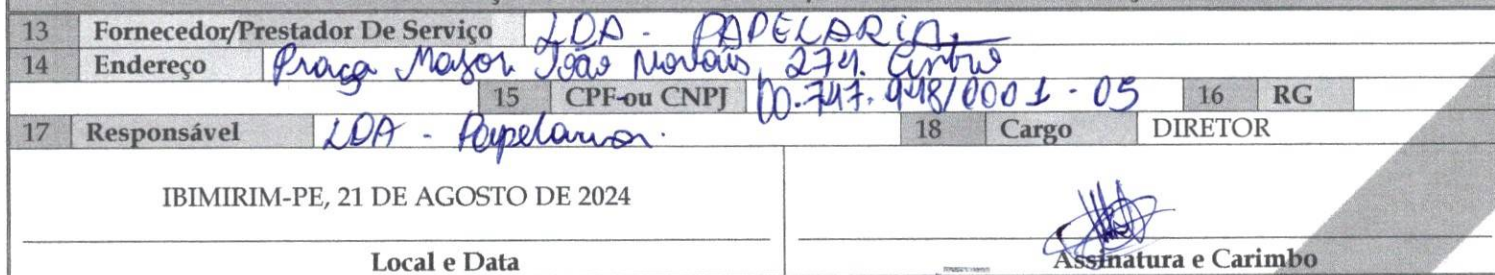 13 Fornecedor/Prestador De Serviço LDA - PAPELARIA
14 Endereço Praça Major João Novais, 274. Centro
15 CPF ou CNPJ 00.747.948/0001-05 16 RG
17 Responsável LDA - Papelaria. 18 Cargo DIRETOR
IBIMIRIM-PE, 21 DE AGOSTO DE 2024
Local e Data Assinatura e Carimbo